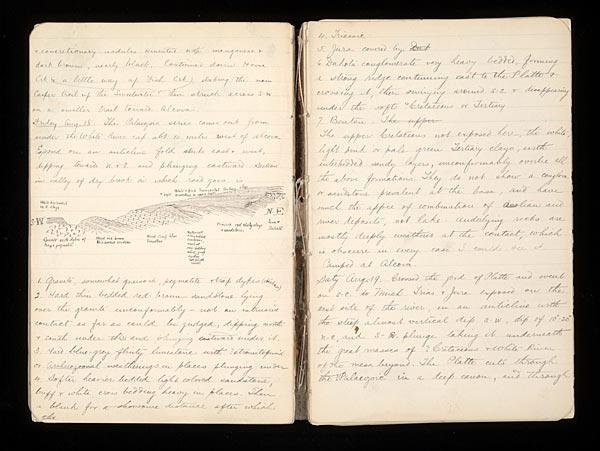 & concretionary nodules cemented with manganese &
dark brown, nearly black. Continued down Horse
Crk & a little way up Fish Crk, striking the main
Casper trail up the Sweetwater. Then struck across S.W.
on a smaller trail toward Alcova.
Friday Aug. 18. The Palaeozoic series came out from
under the White River cap about miles west of Alcova
on an anticline fold strike east & west,
dipping towards N. & S. and plunging eastward. Section
in valley of dry brook in which road goes is
S-W
N.E.
1. Granite, somewhat gneissoid, pegmatite & trap dykes
2. Hard thin bedded red brown sandstone lying
over the granite unconformably - not an intrusive
contact as far as could be judged, dipping north
& south under this and plunging eastward under it.
3. Hard blue-gray flinty limestone with
or weatherings in places plunging under
4. Softer heavier bedded light colored sandstone,
buff & white cross bedding heavy in places. Then
a blank for a short distance after which
the
4. Triassic
5. Jura covered by
6 Dakota conglomerate very heavy bedded, forming
a strong ridge continuing east to the Platte &
crossing it, then swinging around S.E. & disappearing
under the soft Cretaceous or Tertiary
7 Benton. The upper
The upper Cretaceous not exposed here, the white,
light pink or pale green Tertiary clays, with
interbedded sandy layers, unconformably overlie all
the above formations. They do not show a conglom.
or sandstone prevalent at the base, and have
much the appce of combination of aeolian and
river deposits, not lake. Underlying rocks are
mostly deeply weathered at the contact, which
is obscure in every case I could see it.
Camped at Alcova.
Saty Aug. 19. Crossed the ford of Platte and went
on S.E. to Trias & Jura exposed on the
east side of the river, in an anticline with
the steep almost vertical dip S.W., dip of 15°-20°
N.E, and S-E plunge taking it underneath
the great masses of Cretaceous & White River
of the mesa beyond. The Platte cuts through
the Palaeozoic in a deep canon, and through